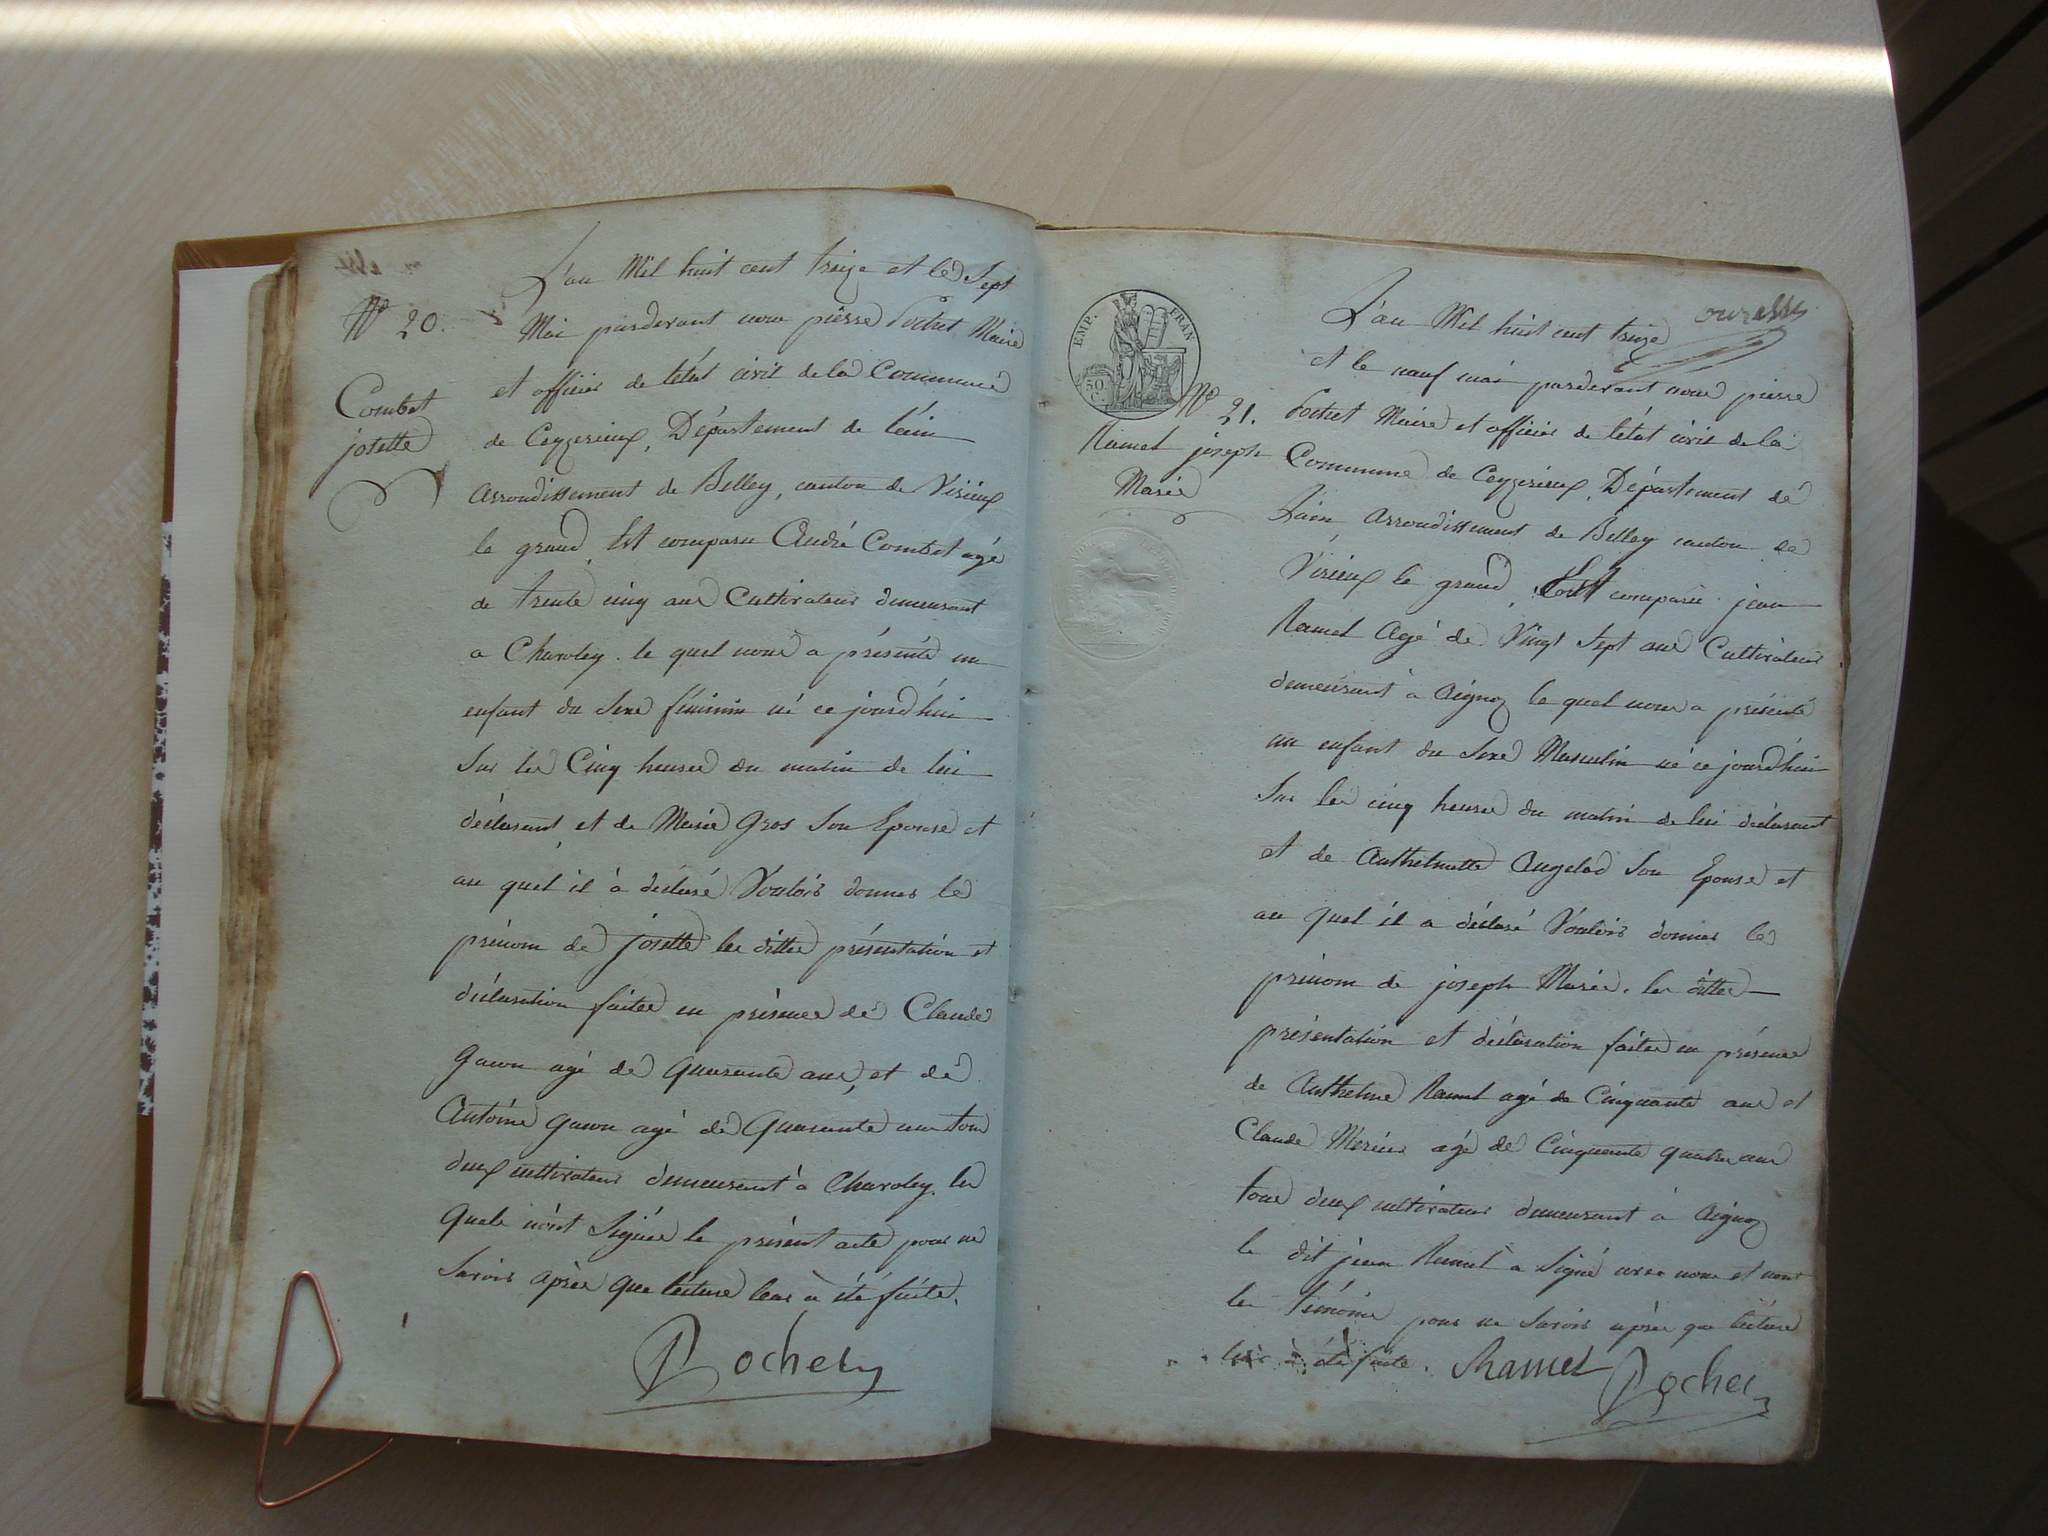 N° 20.
Combet
josette
L'an Mil huit cent treize et le Sept
Mai pardevant nous pièrre Pochet Maire
et officier de l'état civil de la Commune
de Ceyzerieux, Département de l'ain
arrondissement de Belley, canton de Virieux
le grand, Est comparu André Combet agé
de trente cinq ans Cultivateur demeurant
a Chavoley. le quel nous a présenté un
enfant du Sexe féminin né ce jourd'hui
Sur les Cinq heures du matin de lui
déclarant, et de Marie Gros Son Epouse et
au quel il à déclaré Vouloir donner le
prénom de josette les dittes présentation et
déclaration faites en présence de Claude
Gavon agé de Quarante ans, et de
Antoine Gavon agé de Quarante un tous
deux cultivateurs demeurant à Chavoley. les
Quels n'ont Signés le présent acte pour ne
Savoir après que lecture leur à été faite.
Pochet
EMP. FRAN
50 C.
N° 21.
Ramel joseph
Marie
L'an Mil huit cent treize
et le neuf mai pardevant nous pierre
Pochet Maire et officier de l'état civil de la
Commune de Ceyzerieux, Département de
L'ain, arrondissement de Belley canton de
Virieux le grand, Est comparu jean
Ramel Agé de Vingt Sept ans Cultivateur
demeurant à Aignoz le quel nous a présenté
un enfant du Sexe Masculin né ce jourd'hui
Sur les cinq heures du matin de lui déclarant
et de Anthelmette Angelod Son Epouse et
au quel il a déclaré Vouloir donner le
prénom de joseph Marie. les dittes
présentation et déclaration faites en présence
de Anthelme Ramel agé de Cinquante ans et
Claude Mercier agé de Cinquante quatre ans
tous deux cultivateurs demeurant à Aignoz
le dit jean Ramel à Signé avec nous et non
les témoins pour ne Savoir après que lecture
leur à été faite. Ramel Pochet